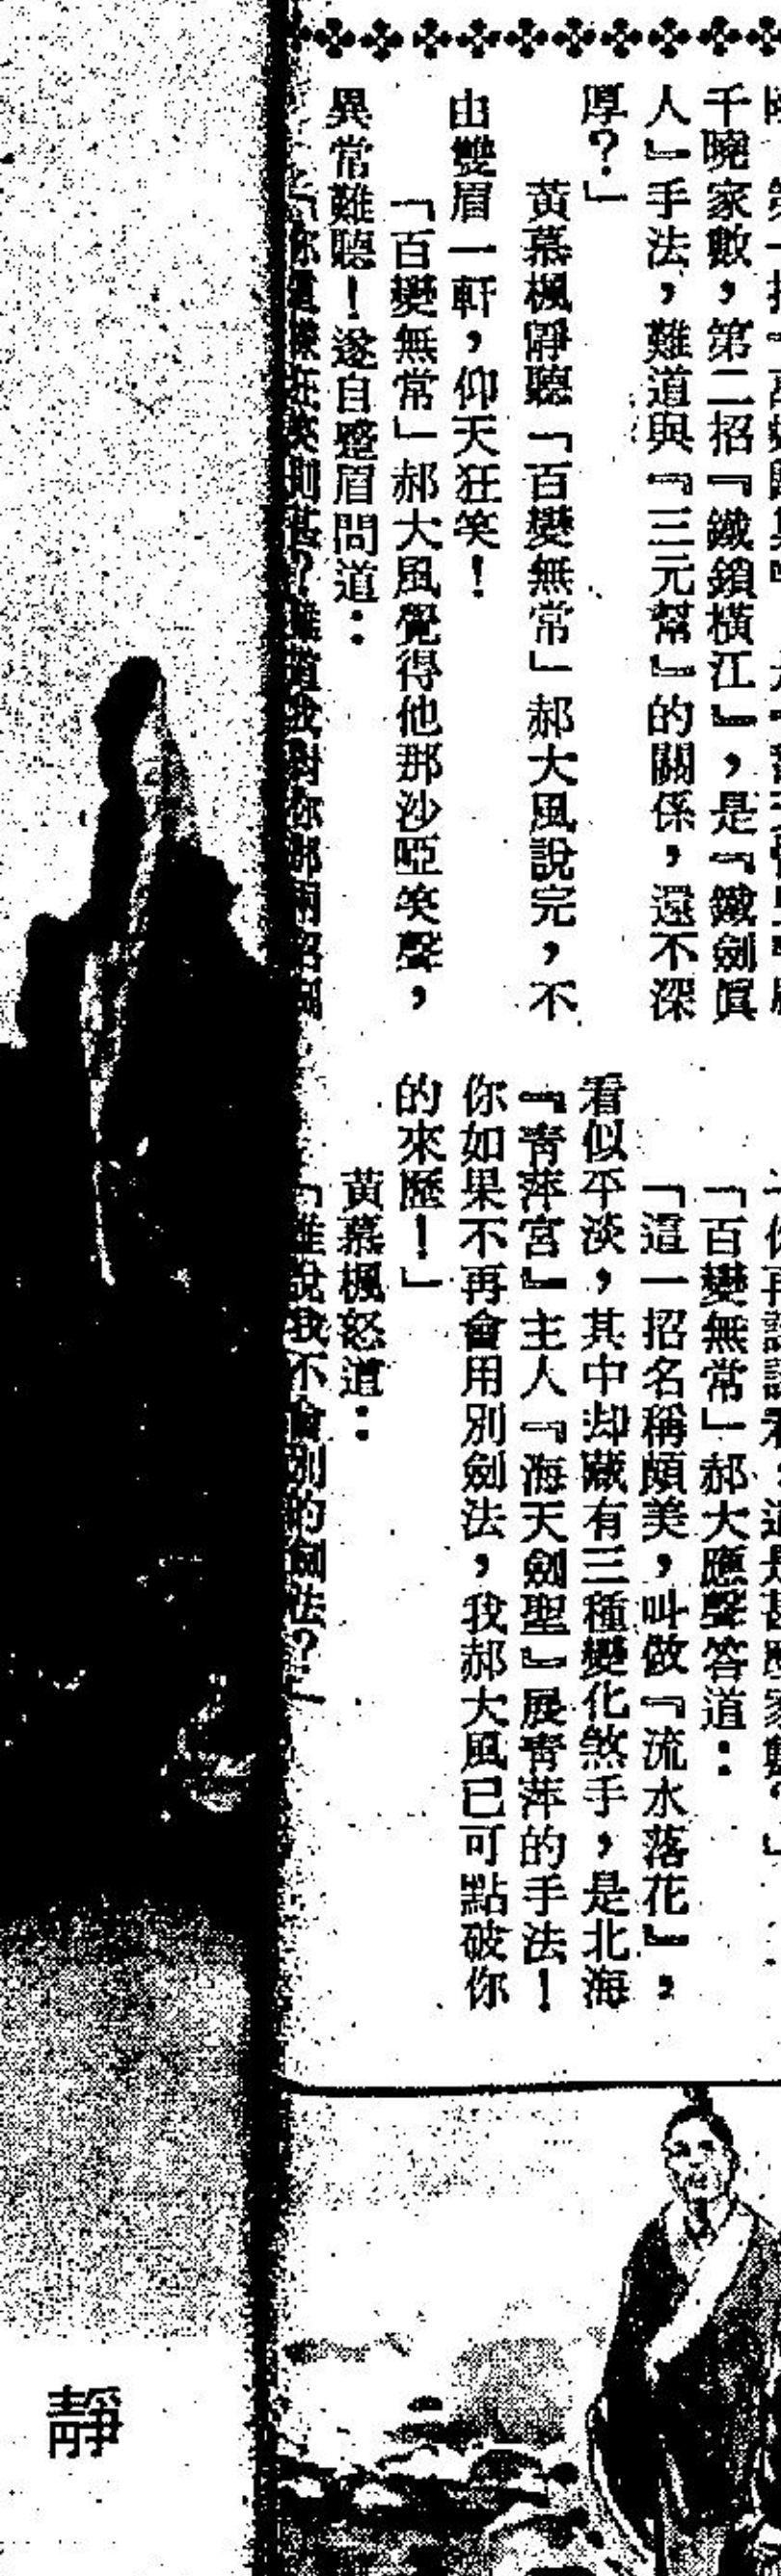 千曉家數，第二招『鐵鎖橫江』，是『鐵劍眞
人』手法，難道與『三元幫』的關係，還不深
厚？」
黃慕楓靜聽「百變無常」郝大風說完，不
由雙眉一軒，仰天狂笑！
「百變無常」郝大風覺得他那沙啞笑聲，
異常難聽！遂自蹙眉問道：
笑則甚？難道我對你那兩招
「百變無常」郝大應聲答道：
「這一招名稱頗美，叫做『流水落花』，
看似平淡，其中却藏有三種變化煞手，是北海
『青萍宮』主人『海天劍聖』展青萍的手法！
你如果不再會用別劍法，我郝大風已可點破你
的來歷！」
黃慕楓怒道：
「誰說我不會別的劍法？」
靜